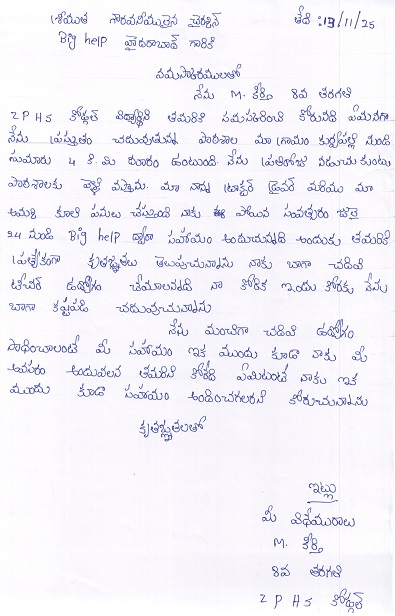 శ్రీయుత గౌరవనీయులైన డైరెక్టర్ తేది :13/11/25
Big help హైదరాబాద్ గారికి
నమస్కారములతో
నేను M. కీర్తి 8వ తరగతి
Z P H S కోడ్గల్ విద్యార్థిని తమరికి నమస్కరించి కోరునది ఏమనగా
నేను ప్రస్తుతం చదువుతున్న పాఠశాల మా గ్రామం నుండి
సుమారు 4 కి. మి దూరం ఉంటుంది. నేను ప్రతిరోజు నడుచుకుంటు
పాఠశాలకు వెళ్లి వస్తాను. మా నాన్న ట్రాక్టర్ డ్రైవర్ మరియు మా
అమ్మ కూలి పనులు చేస్తుంది నాకు పోయిన సంవత్సరం జూలై
24 నుండి Big help ద్వారా సహాయం అందుచున్నది అందుకు తమరికి
ప్రత్యేకంగా కృతజ్ఞతలు తెలుపుచున్నాను నాకు బాగా చదివి
టీచర్ ఉద్యోగం చేయాలన్నది నా కోరిక ఇందు కొరకు నేను
బాగా కష్టపడి చదువుచున్నాను
నేను మంచిగా చదివి ఉద్యోగం
సాధించాలంటే మీ సహాయం ఇక ముందు కూడా నాకు మీ
అవసరం అందువలన తమరిని కోరేది ఏమిటంటే నాకు ఇక
ముందు కూడా సహాయం అందించగలరని కోరుచున్నాను
కృతజ్ఞతలతో
ఇట్లు
మీ విధేయురాలు
M. కీర్తి
8వ తరగతి
Z P H S కోడ్గల్